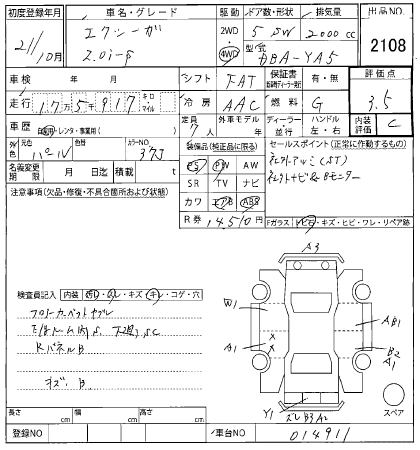 初度登録年月 車名・グレード 駆動 ドア数・形状 排気量 出品NO.
21/10月 エクシーガ 2.0i-S 2WD 4WD 5 SW 2000cc 2108
型式 DBA-YA5
車検 年 月 シフト FAT 保証書 有・無 評価点 3.5
走行 17万5千917 キロ マイル 冷房 AAC 燃料 G
車歴 自家用・レンタ・事業用( ) 定員 7人 外車モデル 年 ディーラー 並行 ハンドル 左・右 内装評価 C
外色 元色 パール カラーNO 37J
装備品(純正品に限る) セールスポイント(正常に作動するもの)
名義変更期限 月 日迄 積載
PS PW AW
注意事項(欠品・修復・不具合箇所および状態)
SR TV ナビ
カワ エアB ABS
R券 14,510円
Fガラス トビ石・キズ・ヒビ・ワレ・リペア跡
検査員記入 内装 キレ・コゲ・穴
フロアカーペットヤブレ
RパネルB
A3
W1
A1
AB1
B2
A1
Y1
B3
A2
スペア
長さ cm 幅 cm 高さ cm
登録NO 車台NO 014911